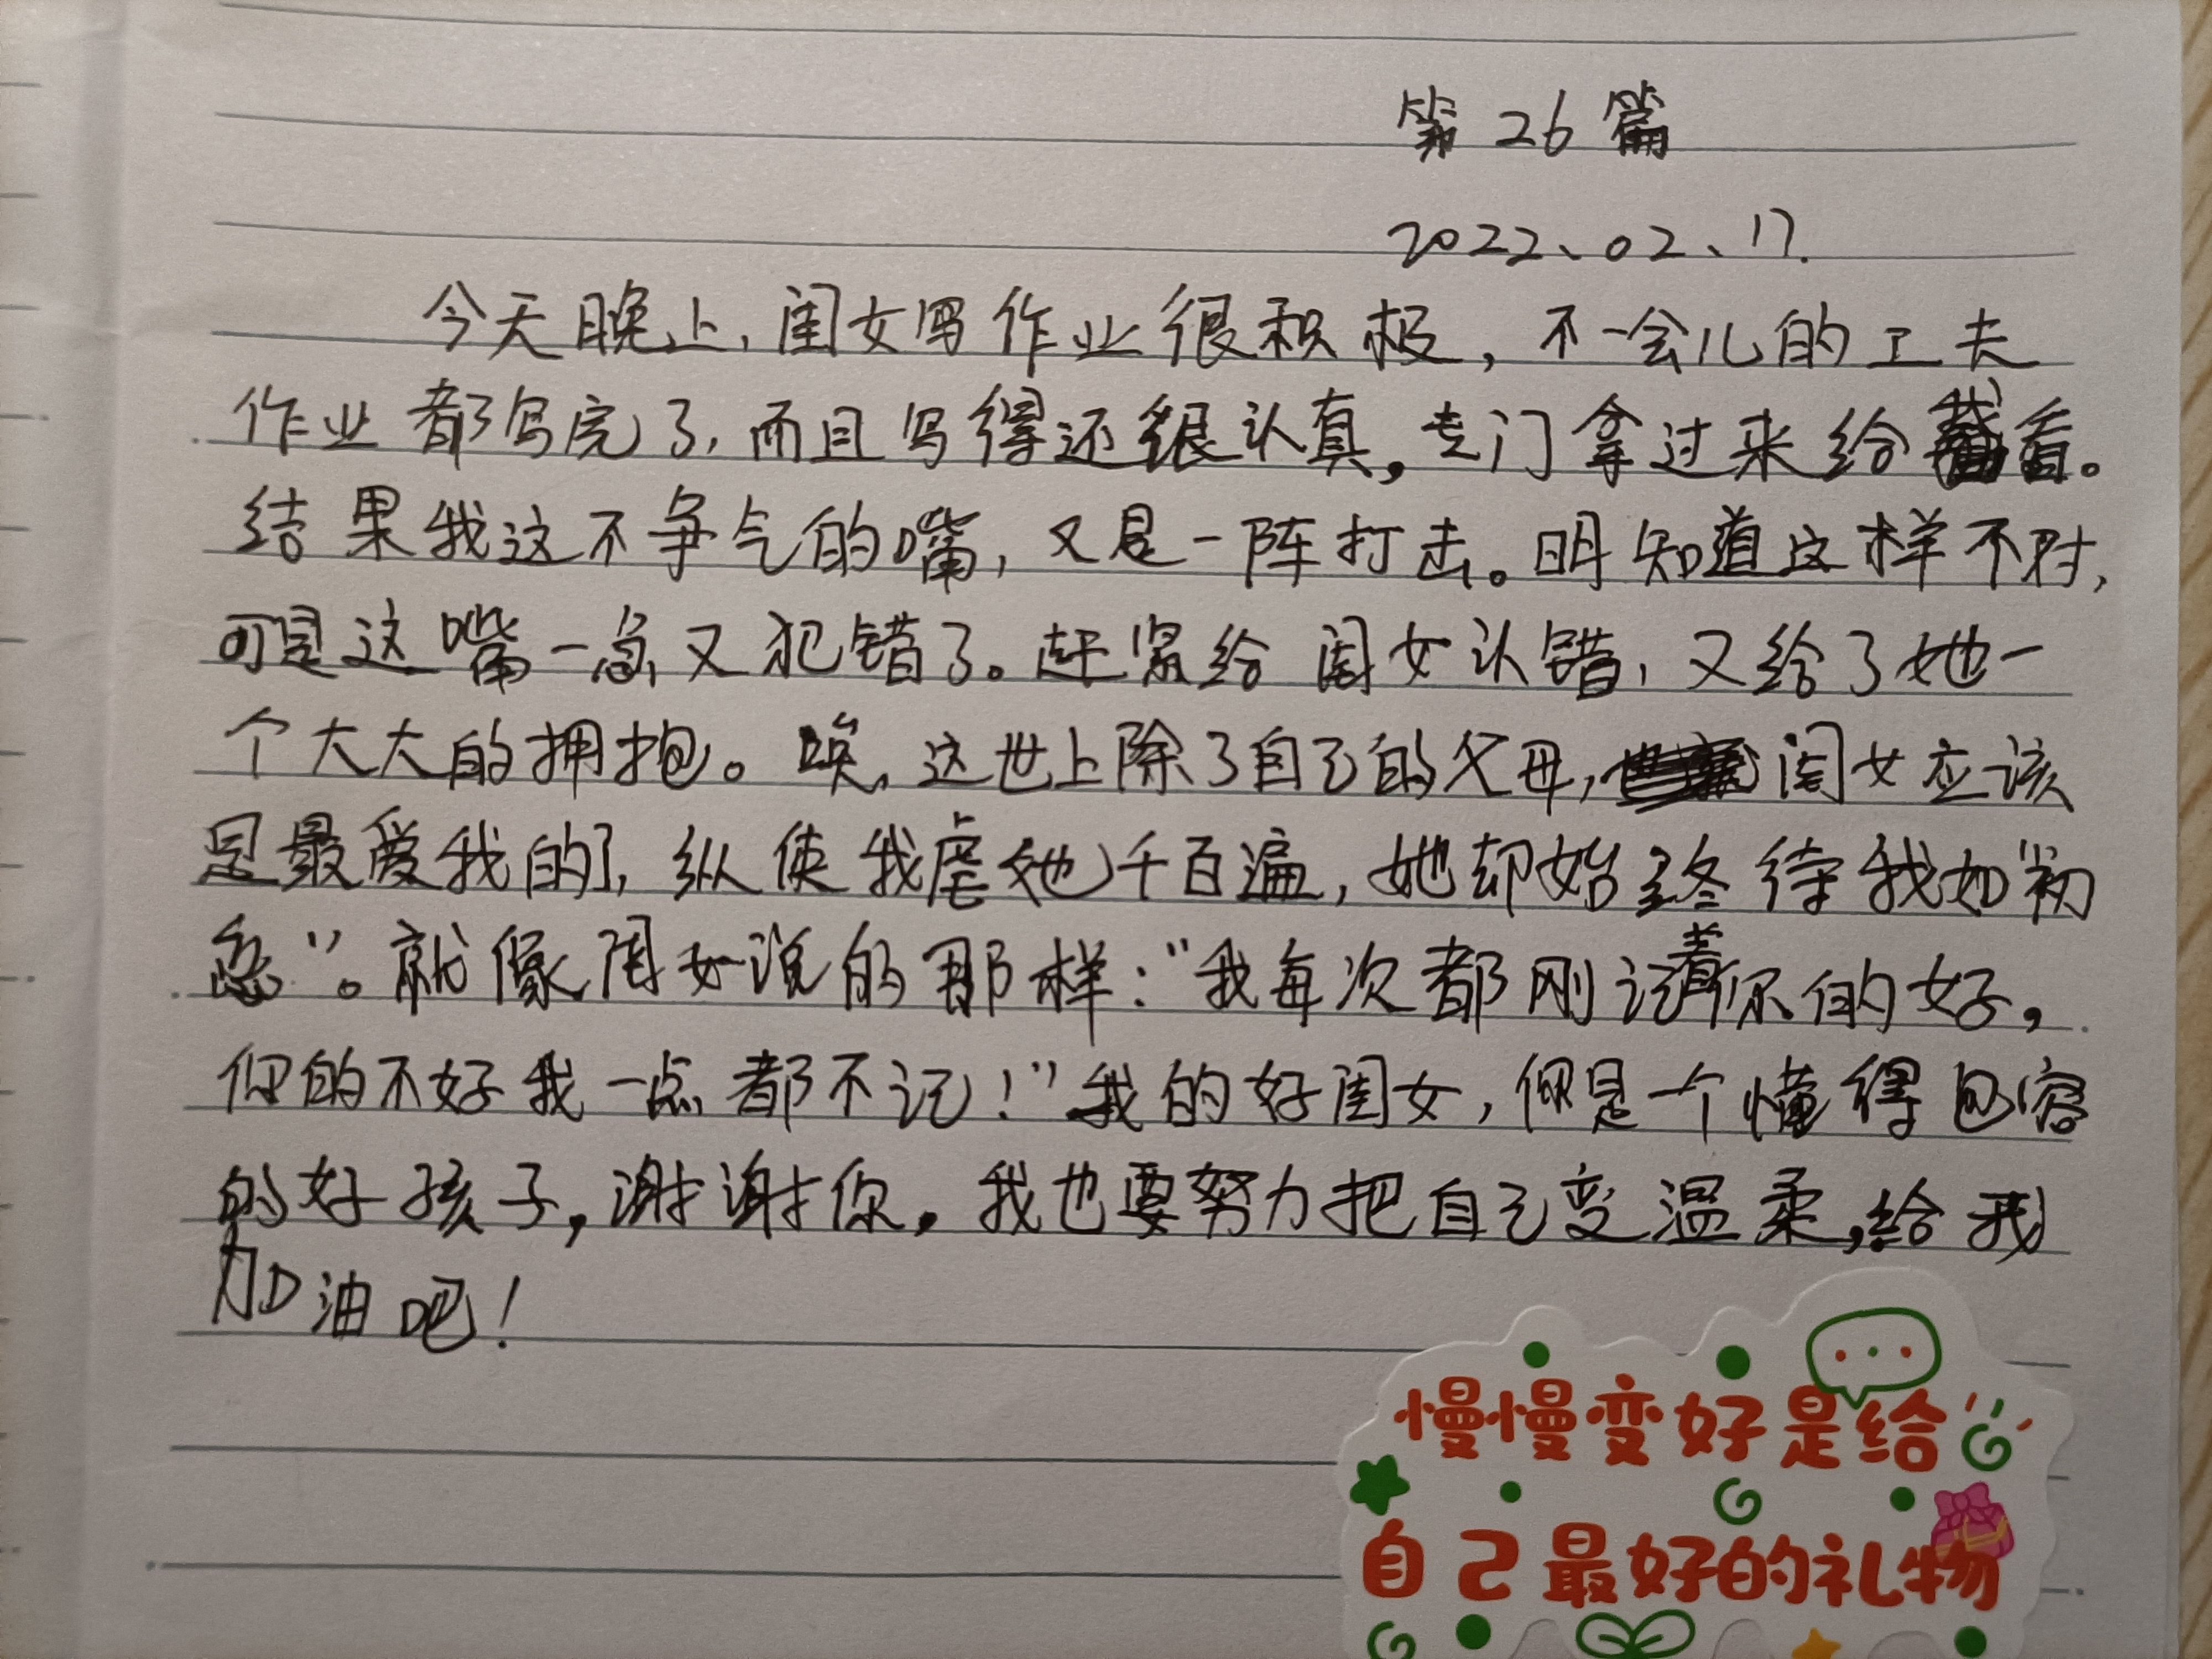 第26篇
2022、02、17.
今天晚上,闺女写作业很积极,不一会儿的工夫
作业都写完了,而且写得还很认真,专门拿过来给我看。
结果我这不争气的嘴,又是一阵打击。明知道这样不对,
可是这嘴一急,又犯错了。赶紧给闺女认错,又给了她一
个大大的拥抱。唉,这世上除了自己的父母,闺女应该
是最爱我的了,纵使我虐她千百遍,她却始终待我如“初
恋”。就像闺女说的那样:“我每次都刚记着你的好,
你的不好我一点都不记!”我的好闺女,你是一个懂得包容
的好孩子,谢谢你。我也要努力把自己变温柔,给我
加油吧!
慢慢变好是给
自己最好的礼物